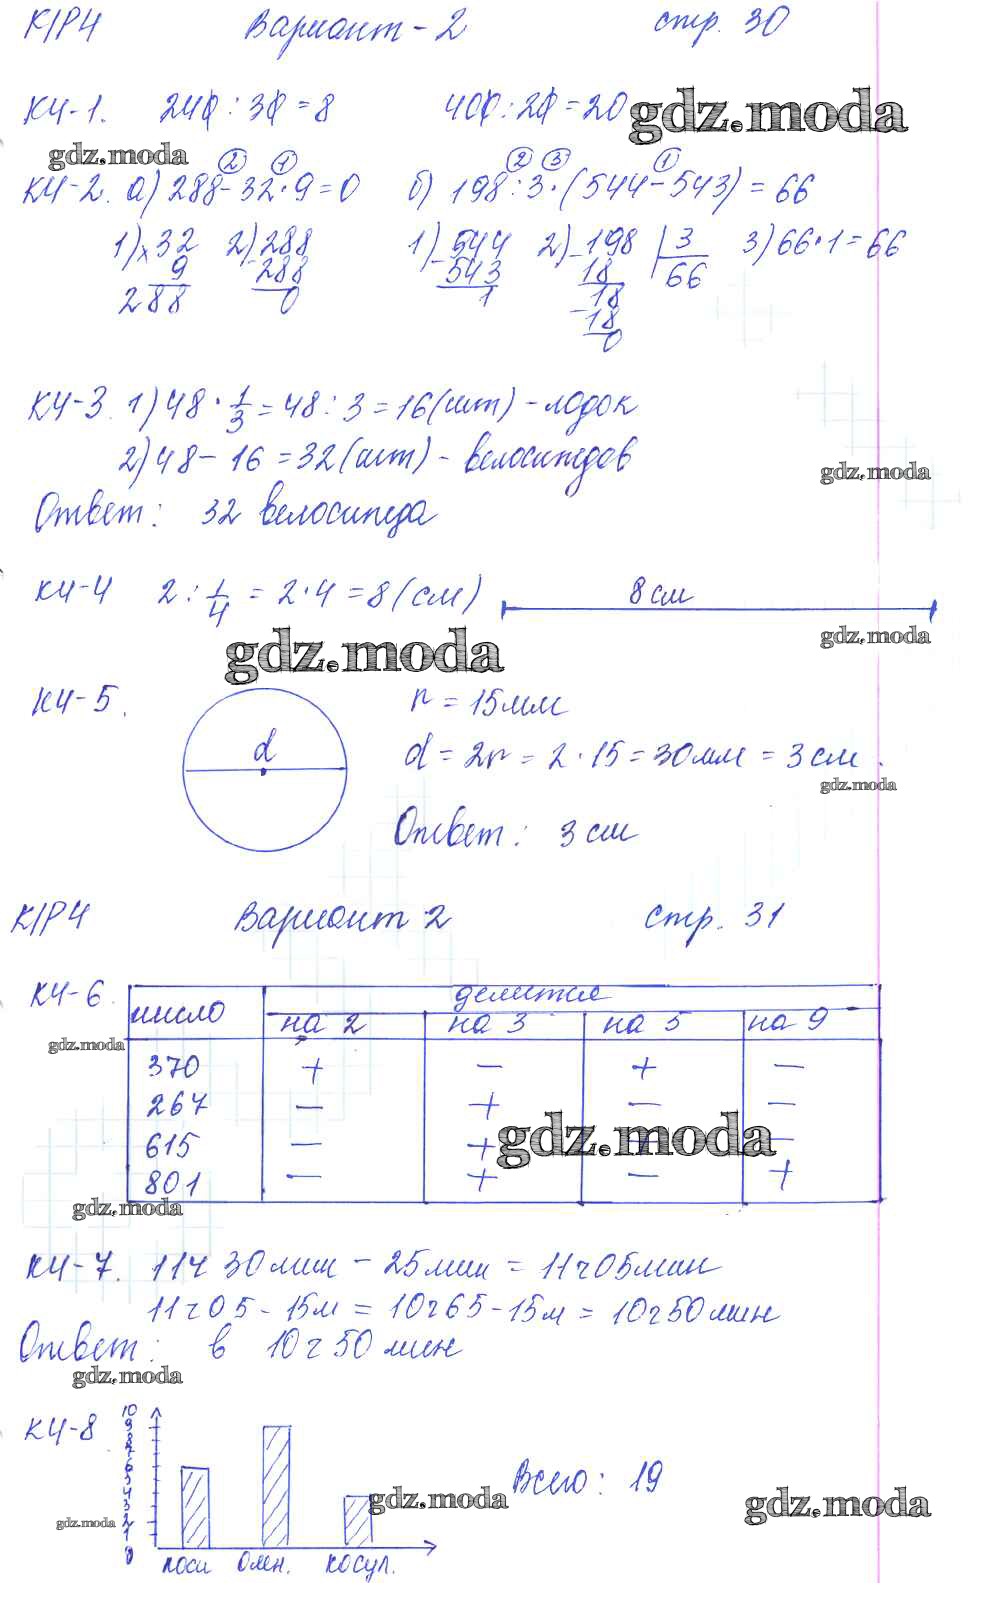 К/Р4 Вариант-2 стр. 30
К4-1. 240 : 30 = 8 400 : 20 = 20 gdz.moda
gdz.moda
2 1 2 3 1
К4-2. а) 288 - 32 · 9 = 0 б) 198 : 3 · (544 - 543) = 66
1) × 32 2) 288 1) 544 2) 198 | 3 3) 66 · 1 = 66
9 - 288 - 543 - 18 66
288 0 1 18
- 18
0
К4-3. 1) 48 · 1/3 = 48 : 3 = 16 (шт) - лодок
2) 48 - 16 = 32 (шт) - велосипедов
gdz.moda
Ответ: 32 велосипеда
К4-4 2 : 1/4 = 2 · 4 = 8 (см) 8 см
gdz.moda gdz.moda
К4-5. r = 15 мм
d d = 2r = 2 · 15 = 30 мм = 3 см.
gdz.moda
Ответ: 3 см
К/Р4 Вариант 2 стр. 31
К4-6. число делится
на 2 на 3 на 5 на 9
gdz.moda
370 + - + -
267 - + - -
615 - + + - gdz.moda
801 - + - +
gdz.moda
К4-7. 11ч 30 мин - 25 мин = 11ч 05 мин
11ч 05 - 15м = 10ч 65 - 15м = 10ч 50 мин
Ответ: в 10ч 50 мин
gdz.moda
К4-8 10
9
8
7
6
5
4
3
2
1
0
Всего: 19
gdz.moda gdz.moda
gdz.moda
лоси олен. косул.